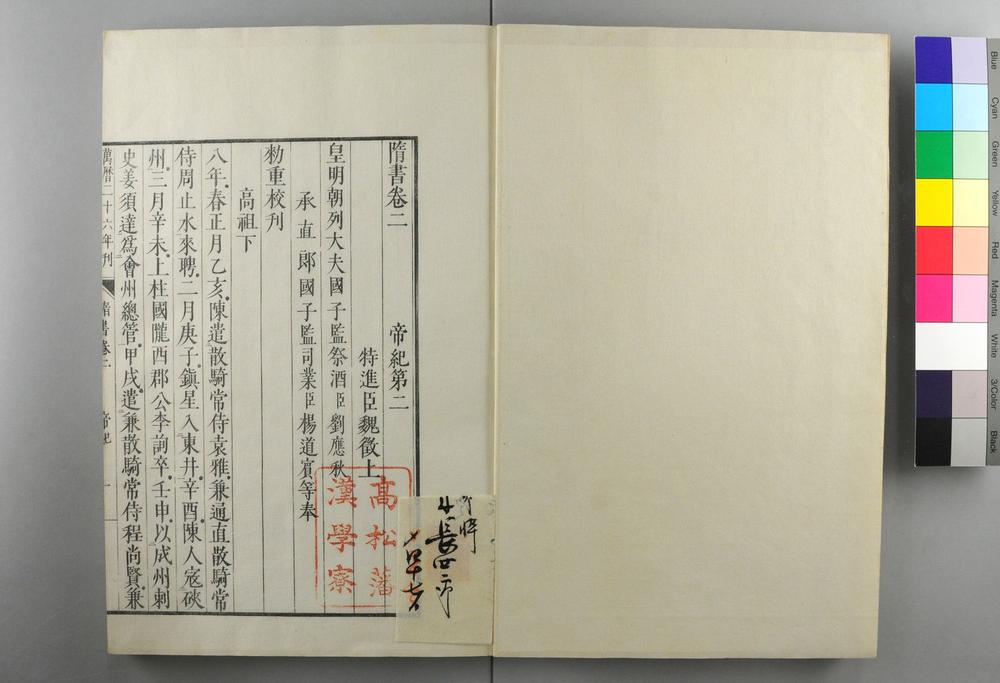 隋書卷二 帝紀第二
特進臣魏徵上
皇明朝列大夫國子監祭酒臣劉應秋
承直郎國子監司業臣楊道賓等奉
勑重校刋
高祖下
八年春正月乙亥陳遣散騎常侍袁雅兼通直散騎常
侍周止水來聘二月庚子鎮星入東井辛酉陳人寇硤
州三月辛未上柱國隴西郡公李詢卒壬申以成州刺
史姜須達爲會州總管甲戌遣兼散騎常侍程尚賢兼
萬曆二十六年刋 隋書卷二 帝紀 一
高松藩
漢學寮
Blue
Cyan
Green
Yellow
Red
Magenta
White
3/Color
Black